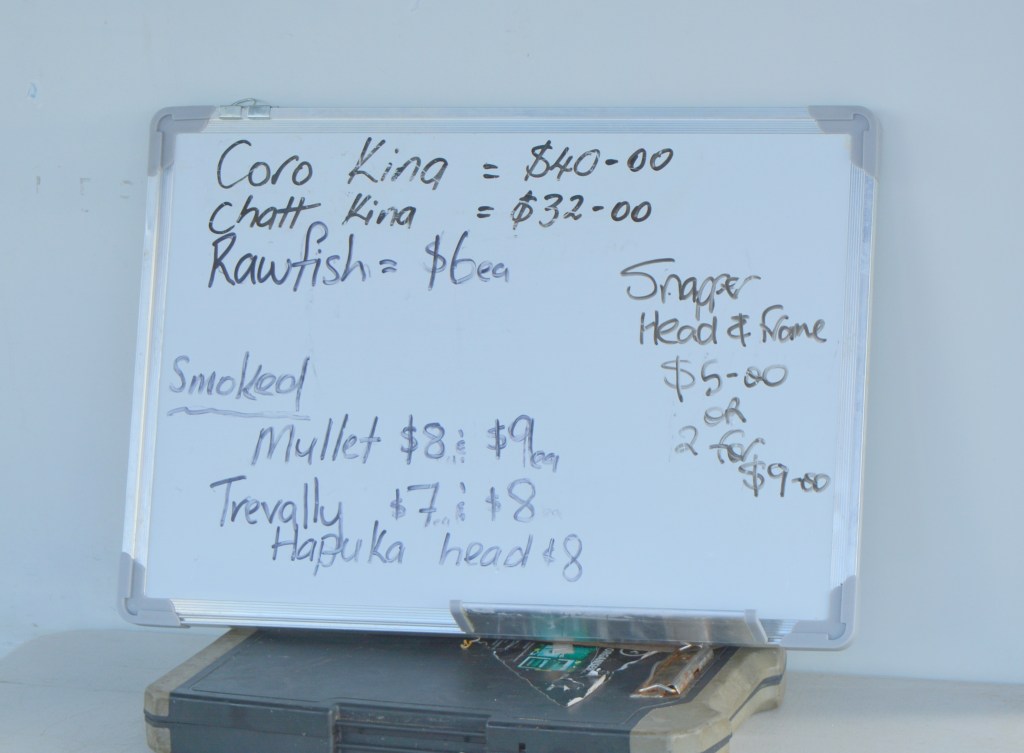 Coro Kina = $40-00
Chatt Kina = $32-00
Rawfish = $6ea
Snapper
Head & frame
$5-00
OR
2 for
$9-00
Smoked
Mullet $8 & $9ea
Trevally $7 & $8
Hapuka head $8